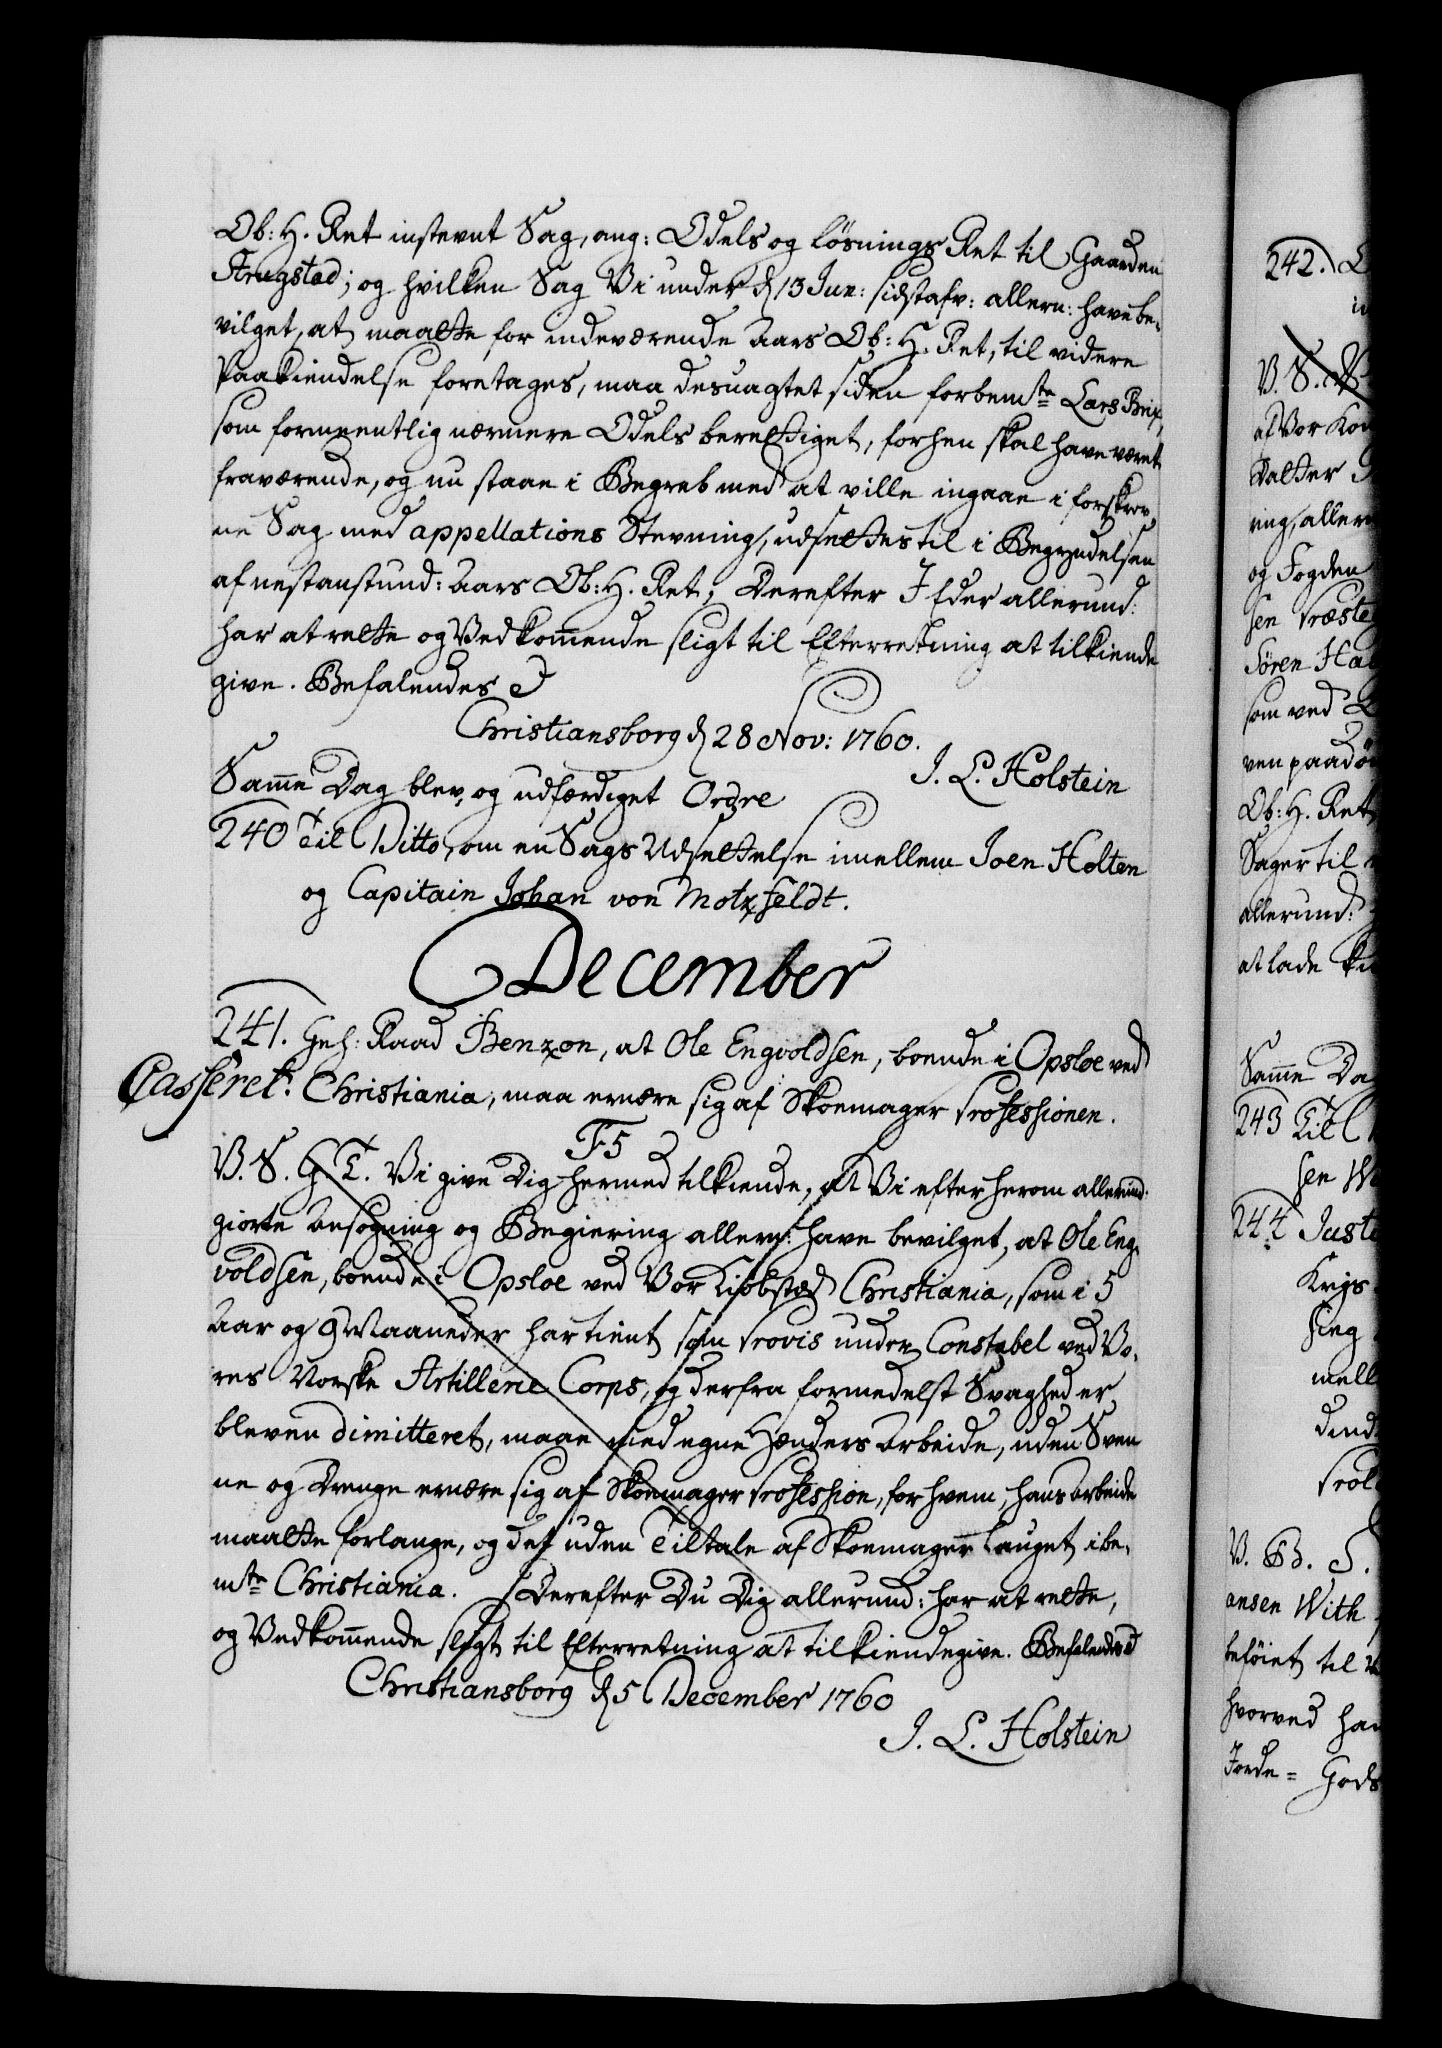 Ob: H. Ret instevnt Sag, ang: Odels og Løsnings Ret til Gaarden
Strugstad; og hvilken Sag Vi under d 13 Jun: sidstafv: allern: have be-
vilget, at maatte for indeværende Aars Ob: H. Ret, til videre
Paakiendelse foretages, maa desuagtet siden forbemte Lars Brix,
som formeentlig nærmere Odels berettiget, forhen skal have været
fraværende, og nu staae i Begreb med at ville ingaae i forskrev-
ne Sag med appellations Stevning, udsættes til i Begyndelsen
af nestanstund: Aars Ob: H. Ret; Derefter I Eder allerund:
har at rette og Vedkom̄ende sligt til Efterretning at tilkiende
give. Befalendes
Christiansborg d 28 Nov: 1760.
J. L. Holstein
Sam̄e Dag blev og udfærdiget Ordre
240 Til Ditto, om en Sags Udsættelse imellem Joen Holten
og Capitain Johan von Motzfeldt.
December
241. Geh: Raad Benzon, at Ole Engvoldsen, boende i Opsloe ved
Casseret. Christiania, maa ernære sig af Skoemager Professionen.
F5
V. S. G. T. Vi give Dig hermed tilkiende, at Vi efter herom allerund:
giorte Ansøgning og Begiering allern: have bevilget, at Ole Eng-
voldsen, boende i Opsloe ved Vor Kiøbstæd Christiania, som i 5
Aar og 9 Maaneder har tient som Provis under Constabel ved Vo-
res Norske Artillerie Corps, og derfra formedelst Svaghed er
bleven dimitteret, maae med egne Hænders Arbeide, uden Sven-
ne og Drenge ernære sig af Skoemager Profession, for hvem, hans Arbeide
maatte forlange, og det uden Tiltale af Skoemager Lauget i be-
mte Christiania. Derefter Du Dig allerund: har at rette,
og Vedkom̄ende sligt til Efterretning at tilkiendegive. Befalendes
Christiansborg d 5 December 1760
J. L. Holstein
242.
V. S.
af Vor Kon
Datter
ring, allern
og Fogden
sen Præste
Søren Hal
som ved
ven paadø
Ob: H. Ret
Sager til
allerund:
at lade
Sam̄e Da
243 Til
sen
244 Juste
Krigs
sing
mell
dend
Prol
V. B. S.
ansen With
beføiet til
hvorved han
Jorde= Gods